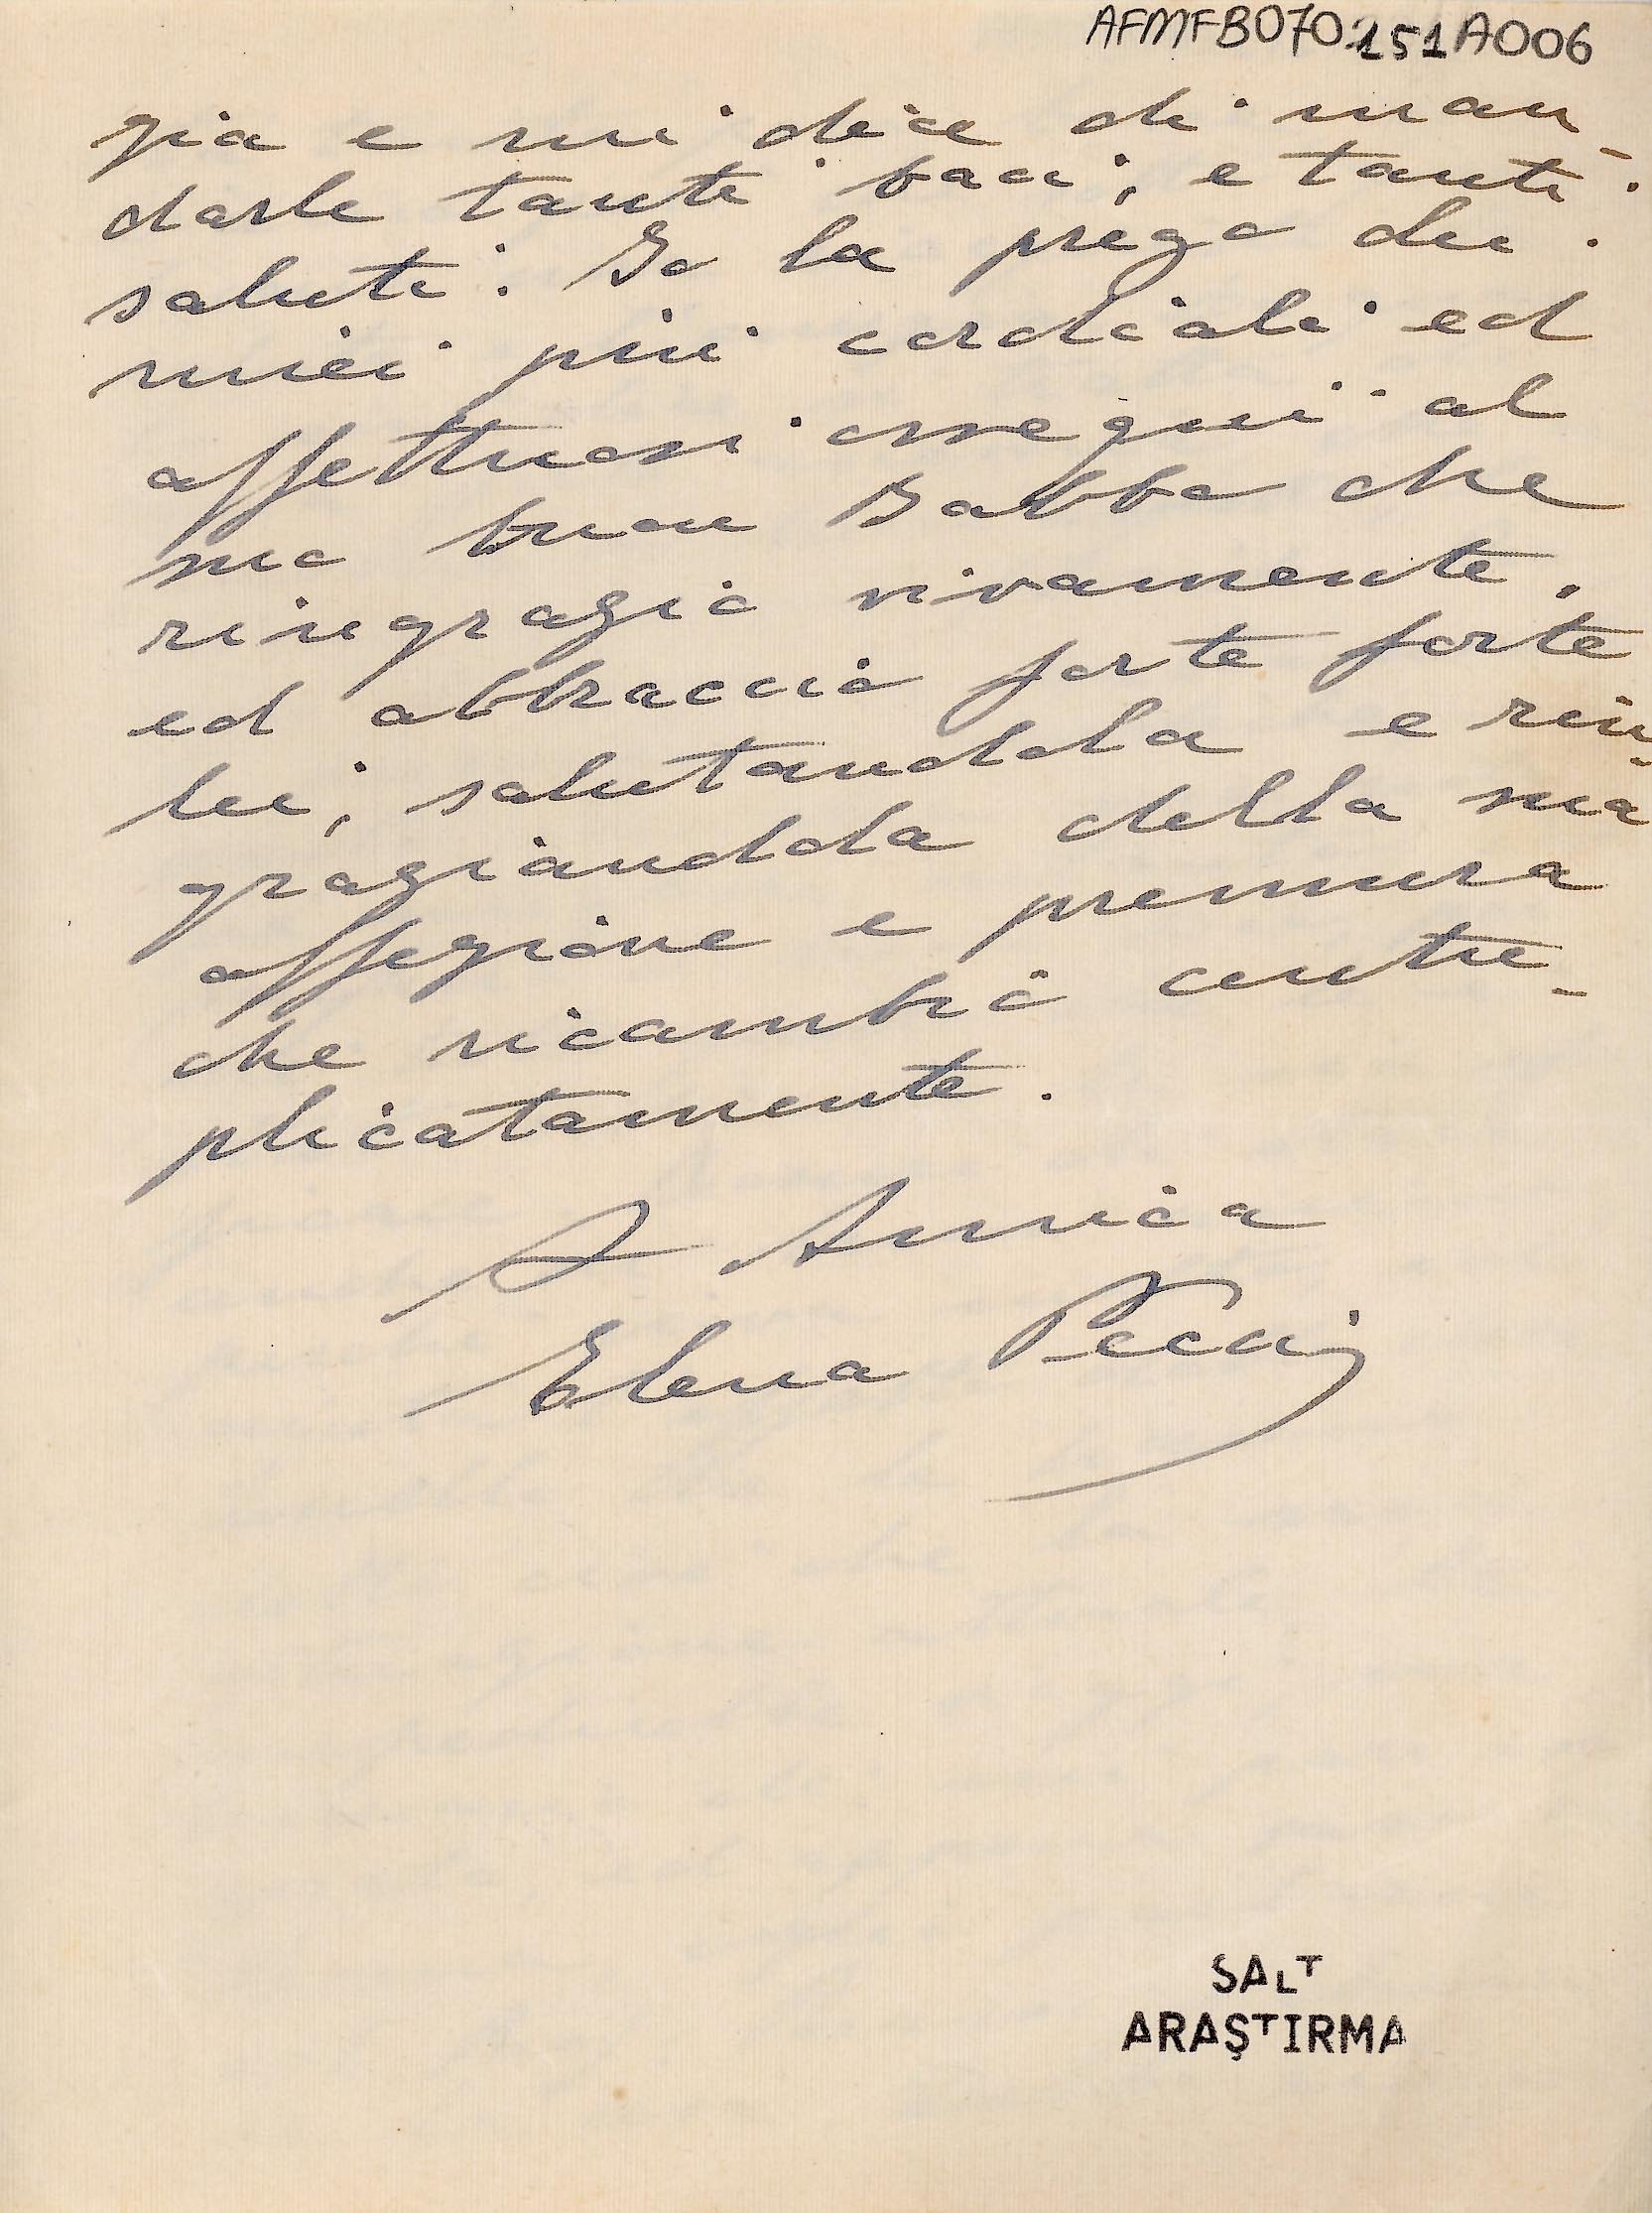 AFMFB070151A006
zia e mi dice di man-
darle tanti baci, e tanti
saluti. Io la prego dei
miei più cordiali ed
affettuosi ossequi al
suo buon Babbo che
ringrazio vivamente,
ed abbraccio forte forte
lei, salutandola e rin-
graziandola della sua
affezione e premura
che ricambio centu-
plicatamente.
Amica
Elena Pecci
SALT
ARAŞTIRMA